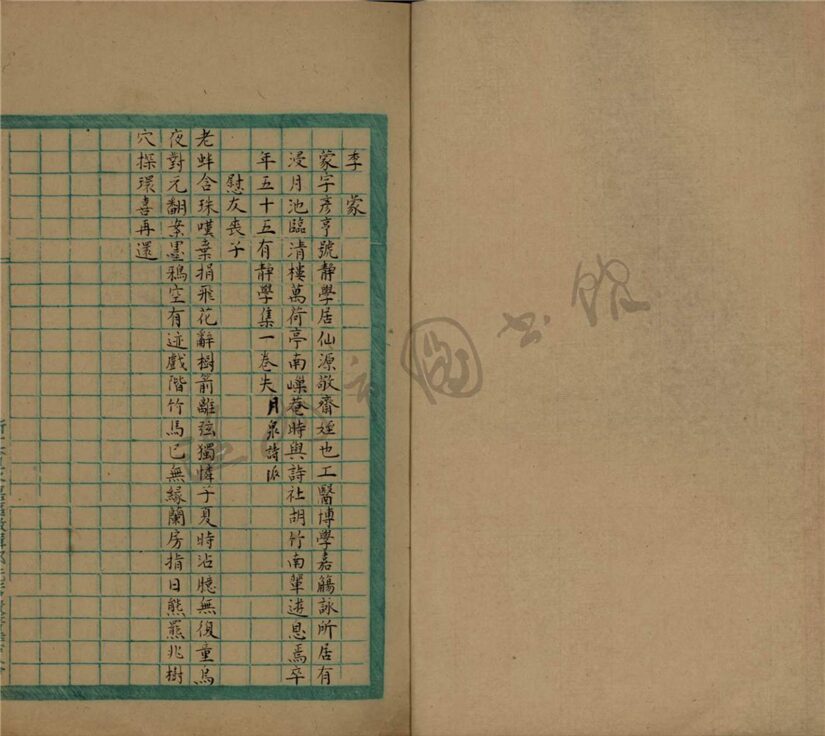 李蒙
蒙字彥亨號靜學居仙源敬齋姪也工醫博學嘉觴詠所居有
浸月池臨清樓萬荷亭南嶼菴時與詩社胡竹南輩遊息焉卒
年五十五有靜學集一卷失月泉詩派
慰友喪子
老蚌含珠嘆棄捐飛花辭樹箭離弦獨憐子夏時沾臆無復童烏
夜對元翻案墨鴉空有迹戲階竹馬已無緣蘭房指日熊羆兆樹
穴探環喜再還
圖書館